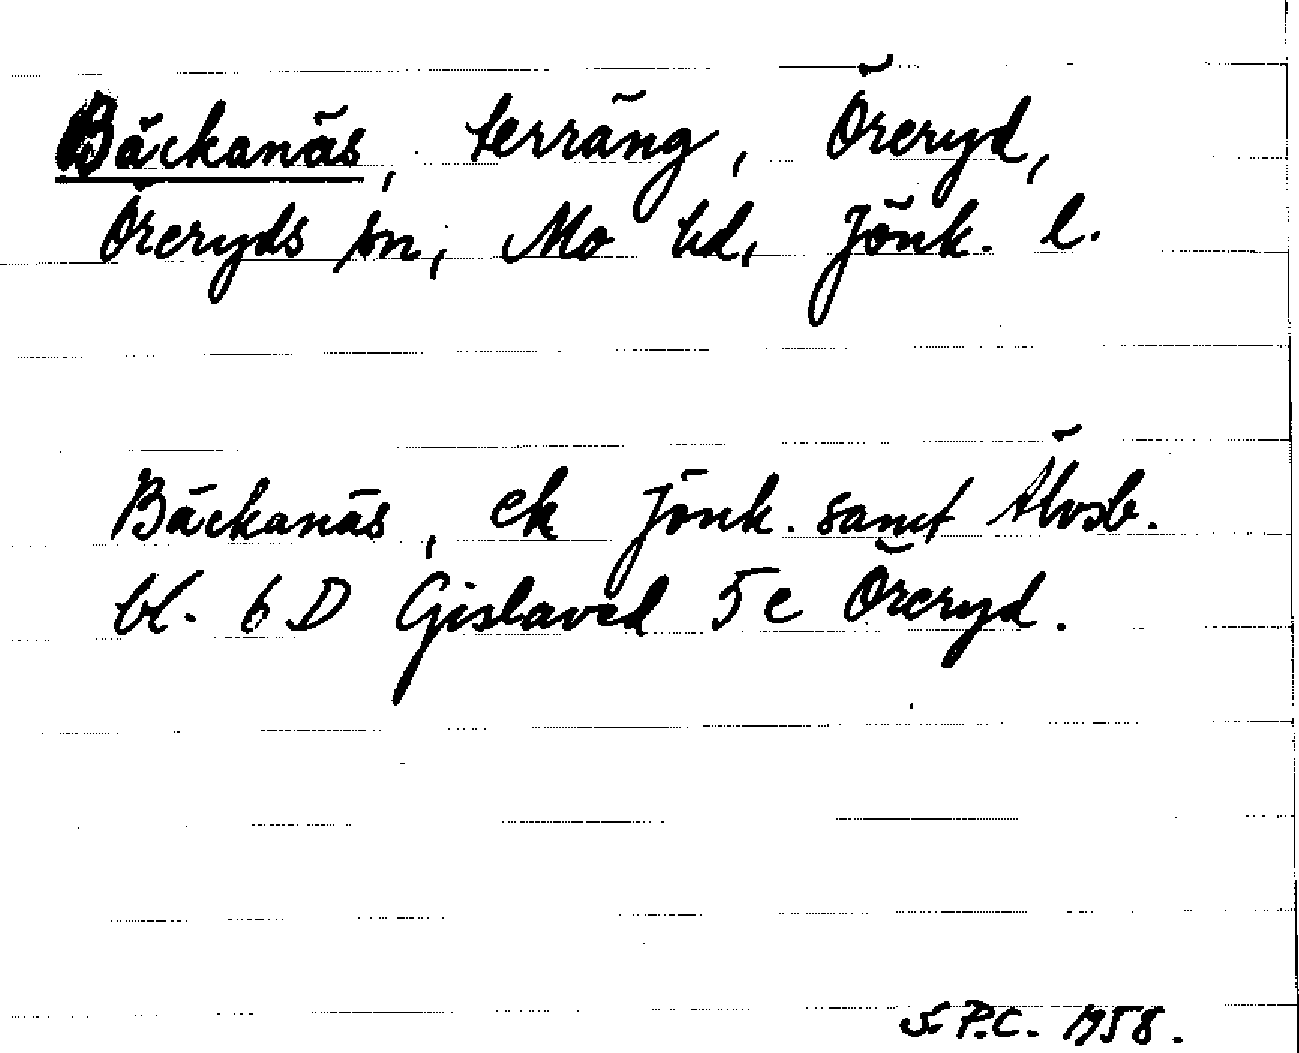 Bäckanäs, terräng, Öreryd,
Öreryds sn, Mo hd, Jönk. l.
Bäckanäs, ek Jönk. samt Älvsb.
bl. 6 D Gislaved 5 e Öreryd.
S.P.C. 1958.